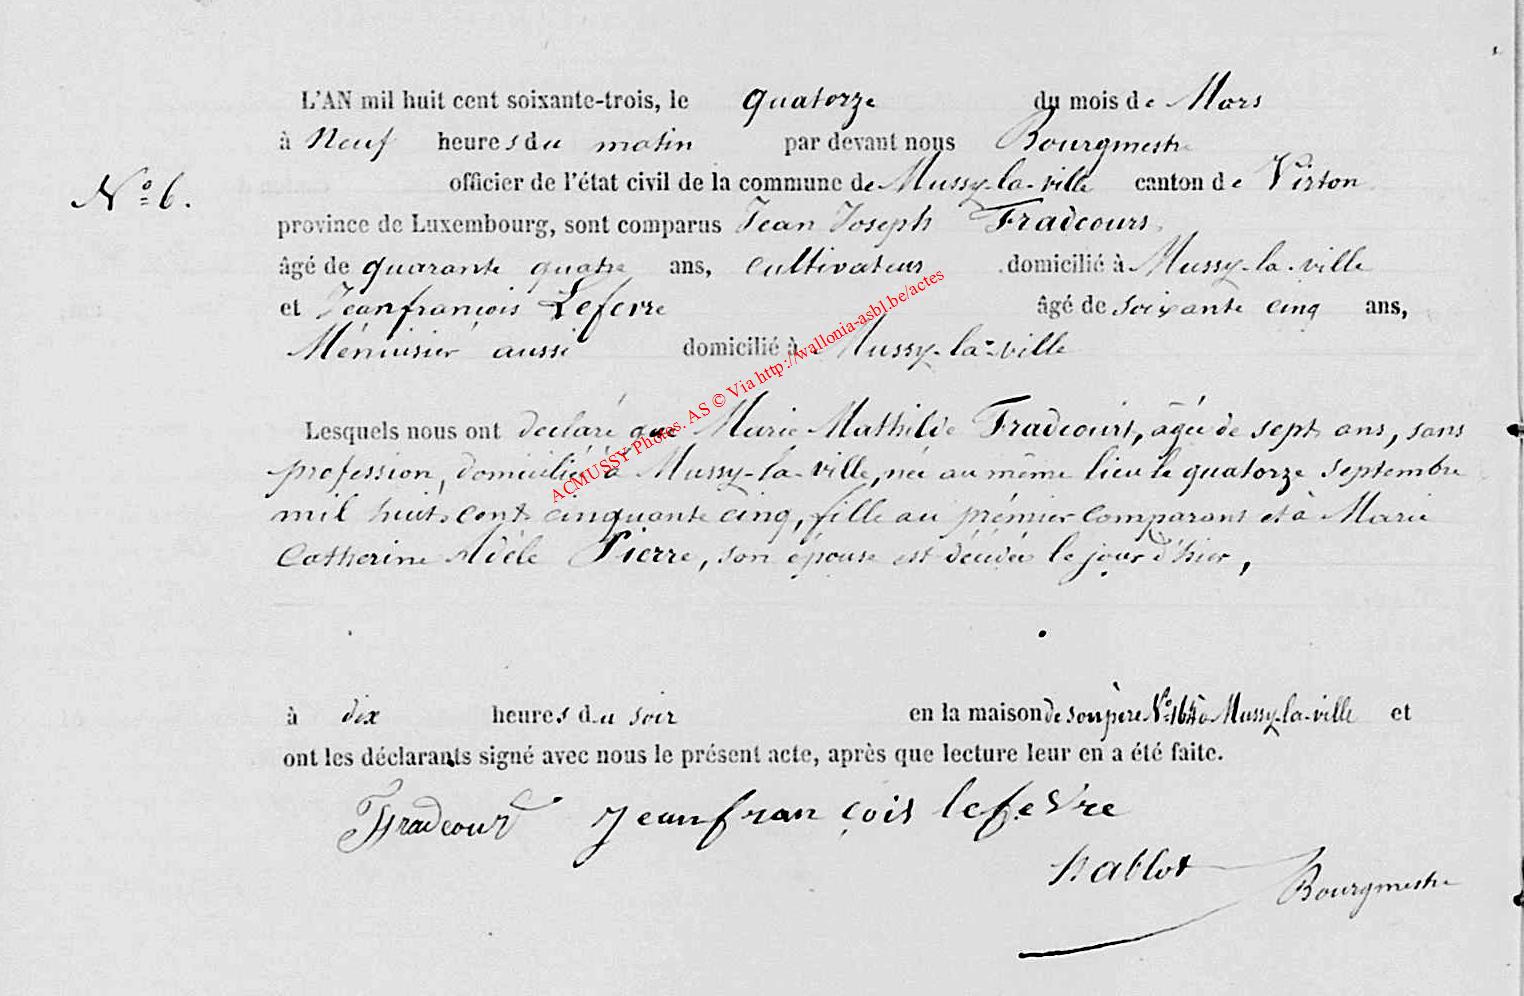 L'AN mil huit cent soixante-trois, le quatorze du mois de Mars
à Neuf heures du matin par devant nous Bourgmestre
N° 6. officier de l'état civil de la commune de Mussy-la-ville canton de Virton
province de Luxembourg, sont comparus Jean Joseph Fradcourt,
âgé de quarante quatre ans, cultivateur domicilié à Mussy-la-ville
et Jeanfrançois Lefevre âgé de soixante cinq ans,
Ménuisier aussi domicilié à Mussy-la-ville
Lesquels nous ont déclaré que Marie Mathilde Fradcourt, âgée de sept ans, sans
profession, domiciliée à Mussy-la-ville, née au même lieu le quatorze septembre
mil huit cent cinquante cinq, fille au prémier comparant et à Marie
Catherine Adèle Pierre, son épouse est décédée le jour d'hier,
à dix heures du soir en la maison de son père N° 164 à Mussy-la-ville et
ont les déclarants signé avec nous le présent acte, après que lecture leur en a été faite.
Fradcourt Jeanfrançois lefevre
hablot Bourgmestre
ACMUSSY Photos. AS © Via http://wallonia-asbl.be/actes